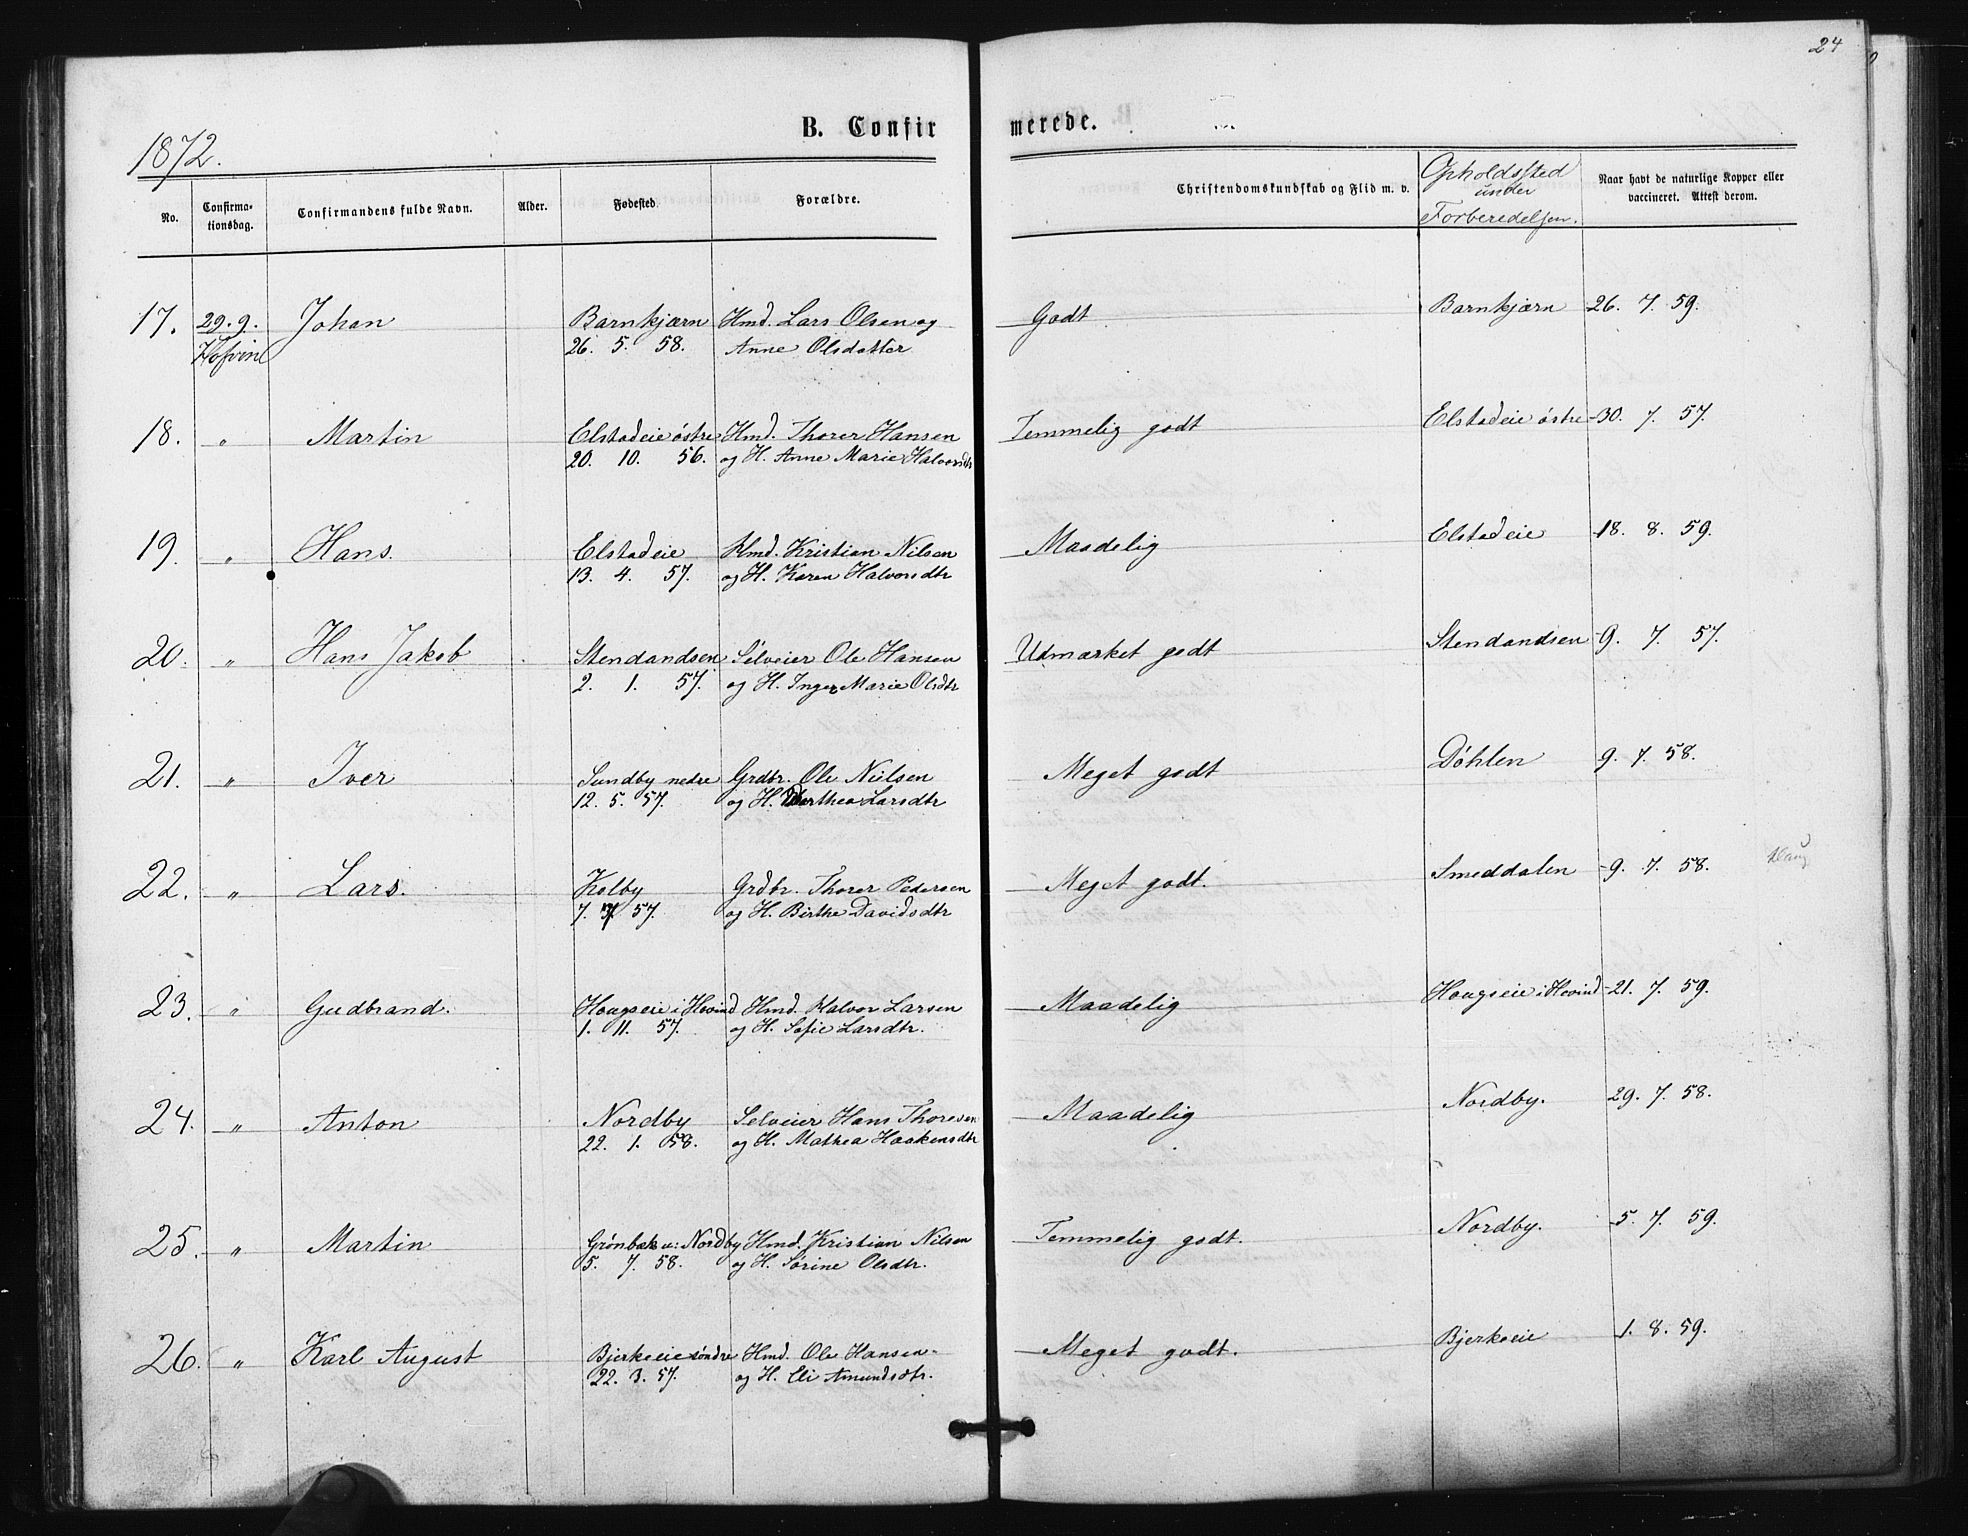 24
1872.
B. Confir merede.
No. Confirmationsdag. Confirmandens fulde Navn. Alder. Fødested. Forældre. Christendomskundskab og Flid m. v. Opholdssted under Forberedelsen. Naar havt de naturlige Kopper eller vaccineret. Attest derom.
17. 29.9. Johan Barnkjærn Hmd. Lars Olsen og Godt Barnkjærn 26. 7. 59.
Hofvin 26. 5. 58. Anne Olsdatter
18. " Martin Elstadeie østre Hmd. Thorer Hansen Temmelig godt Elstadeie østre 30. 7. 57.
20. 10. 56. og H. Anne Marie Halvorsdtr
19. " Hans. Elstadeie Hmd. Kristian Nilsen Maadelig Elstadeie 18. 8. 59.
13. 4. 57. og H. Karen Halvorsdtr
20. " Hans Jakob Stendandsen Selveier Ole Hansen Udmærket godt Stendandsen 9. 7. 57.
2. 1. 57. og H. Inger Marie Olsdtr
21. " Iver Sundby nedre Grdbr. Ole Nielsen Meget godt Døhlen 9. 7. 58.
12. 5. 57. og H. Larsdtr
22. " Lars. Kolby Grdbr. Thorer Pedersen Meget godt. Smeddalen 9. 7. 58. Haug
7. 57. og H. Birthe Davidsdtr
23. " Gudbrand. Haugseie i Hovind Hmd. Halvor Larsen Maadelig Haugseie i Hovind 21. 7. 59.
1. 11. 57. og H. Sofie Larsdtr.
24. " Anton Nordby Selveier Hans Thoresen Maadelig Nordby. 29. 7. 58.
22. 1. 58. og H. Mathea Haakensdtr
25. " Martin Grønbæk u: Nordby Hmd. Kristian Nilsen Temmelig godt. Nordby. 5. 7. 59.
5. 7. 58. og H. Sørine Olsdtr.
26. " Karl August Bjerkeeie søndre Hmd. Ole Hansen Meget godt. Bjerkeeie 1. 8. 59.
22. 3. 57. og H. Eli Amundsdtr.